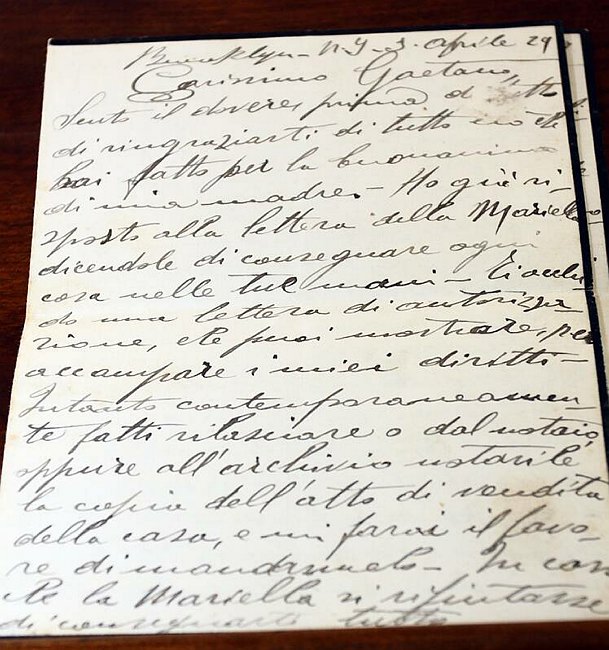 Brooklyn - N.Y. 3. aprile 29
Carissimo Gaetano,
Sento il dovere, prima di tutto
di ringraziarti di tutto ciò che
hai fatto per la buonanima
di mia madre - Ho già ri-
sposto alla lettera della Mariella
dicendole di consegnare ogni
cosa nelle tue mani - Ti acclu-
do una lettera di autorizza-
zione, che puoi mostrare, per
accampare i miei diritti -
Intanto contemporaneamen-
te fatti rilasciare o dal notaio,
oppure all'archivio notarile
la copia dell'atto di vendita
della casa, e mi farai il favo-
re di mandarmelo - In caso
che la Mariella si rifiutasse
di consegnarti tutto